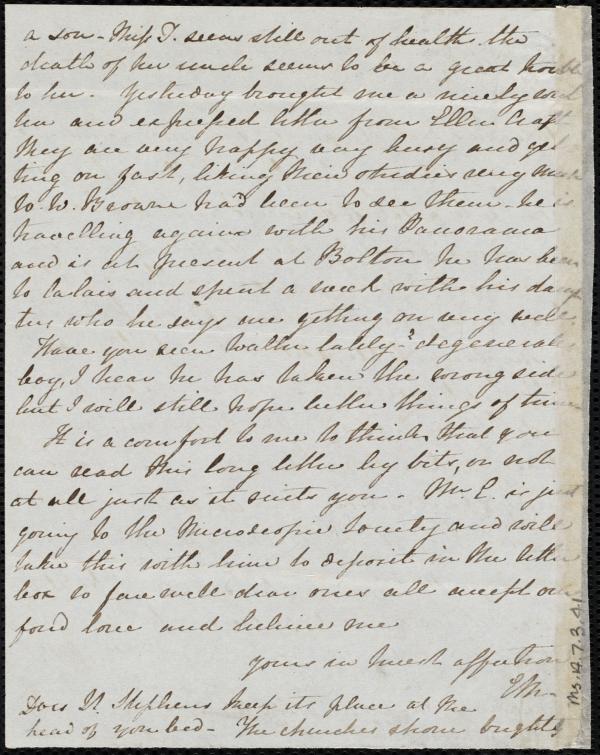 a son - Miss T. seems still out of health the
death of her uncle seems to be a great trouble
to her. Yesterday brought me a nicely writ
ten and expressed letter from Ellen Craft
they are very happy very busy and get
ting on fast, liking their studies very much
W. W. Browne had been to see them - he is
travelling again with his Panorama
and is at present at Bolton he has been
to Calais and spent a week with his daugh
ters who he says are getting on very well.
Have you seen Walter lately? degenerate
boy, I hear he has taken the wrong side
but I will still hope better things of time
It is a comfort to me to think that you
can read this long letter by bits, or not
at all just as it suits you - Mr. E. is just
going to the Microscopic Society and will
take this with him to deposit in the letter
box so farewell dear ones all accept our
fond love and believe me
yours in much affection
EM.
Does St Stephens keep its place at the
head of your bed - The churches shone brightly
Ms. A.7.3.41